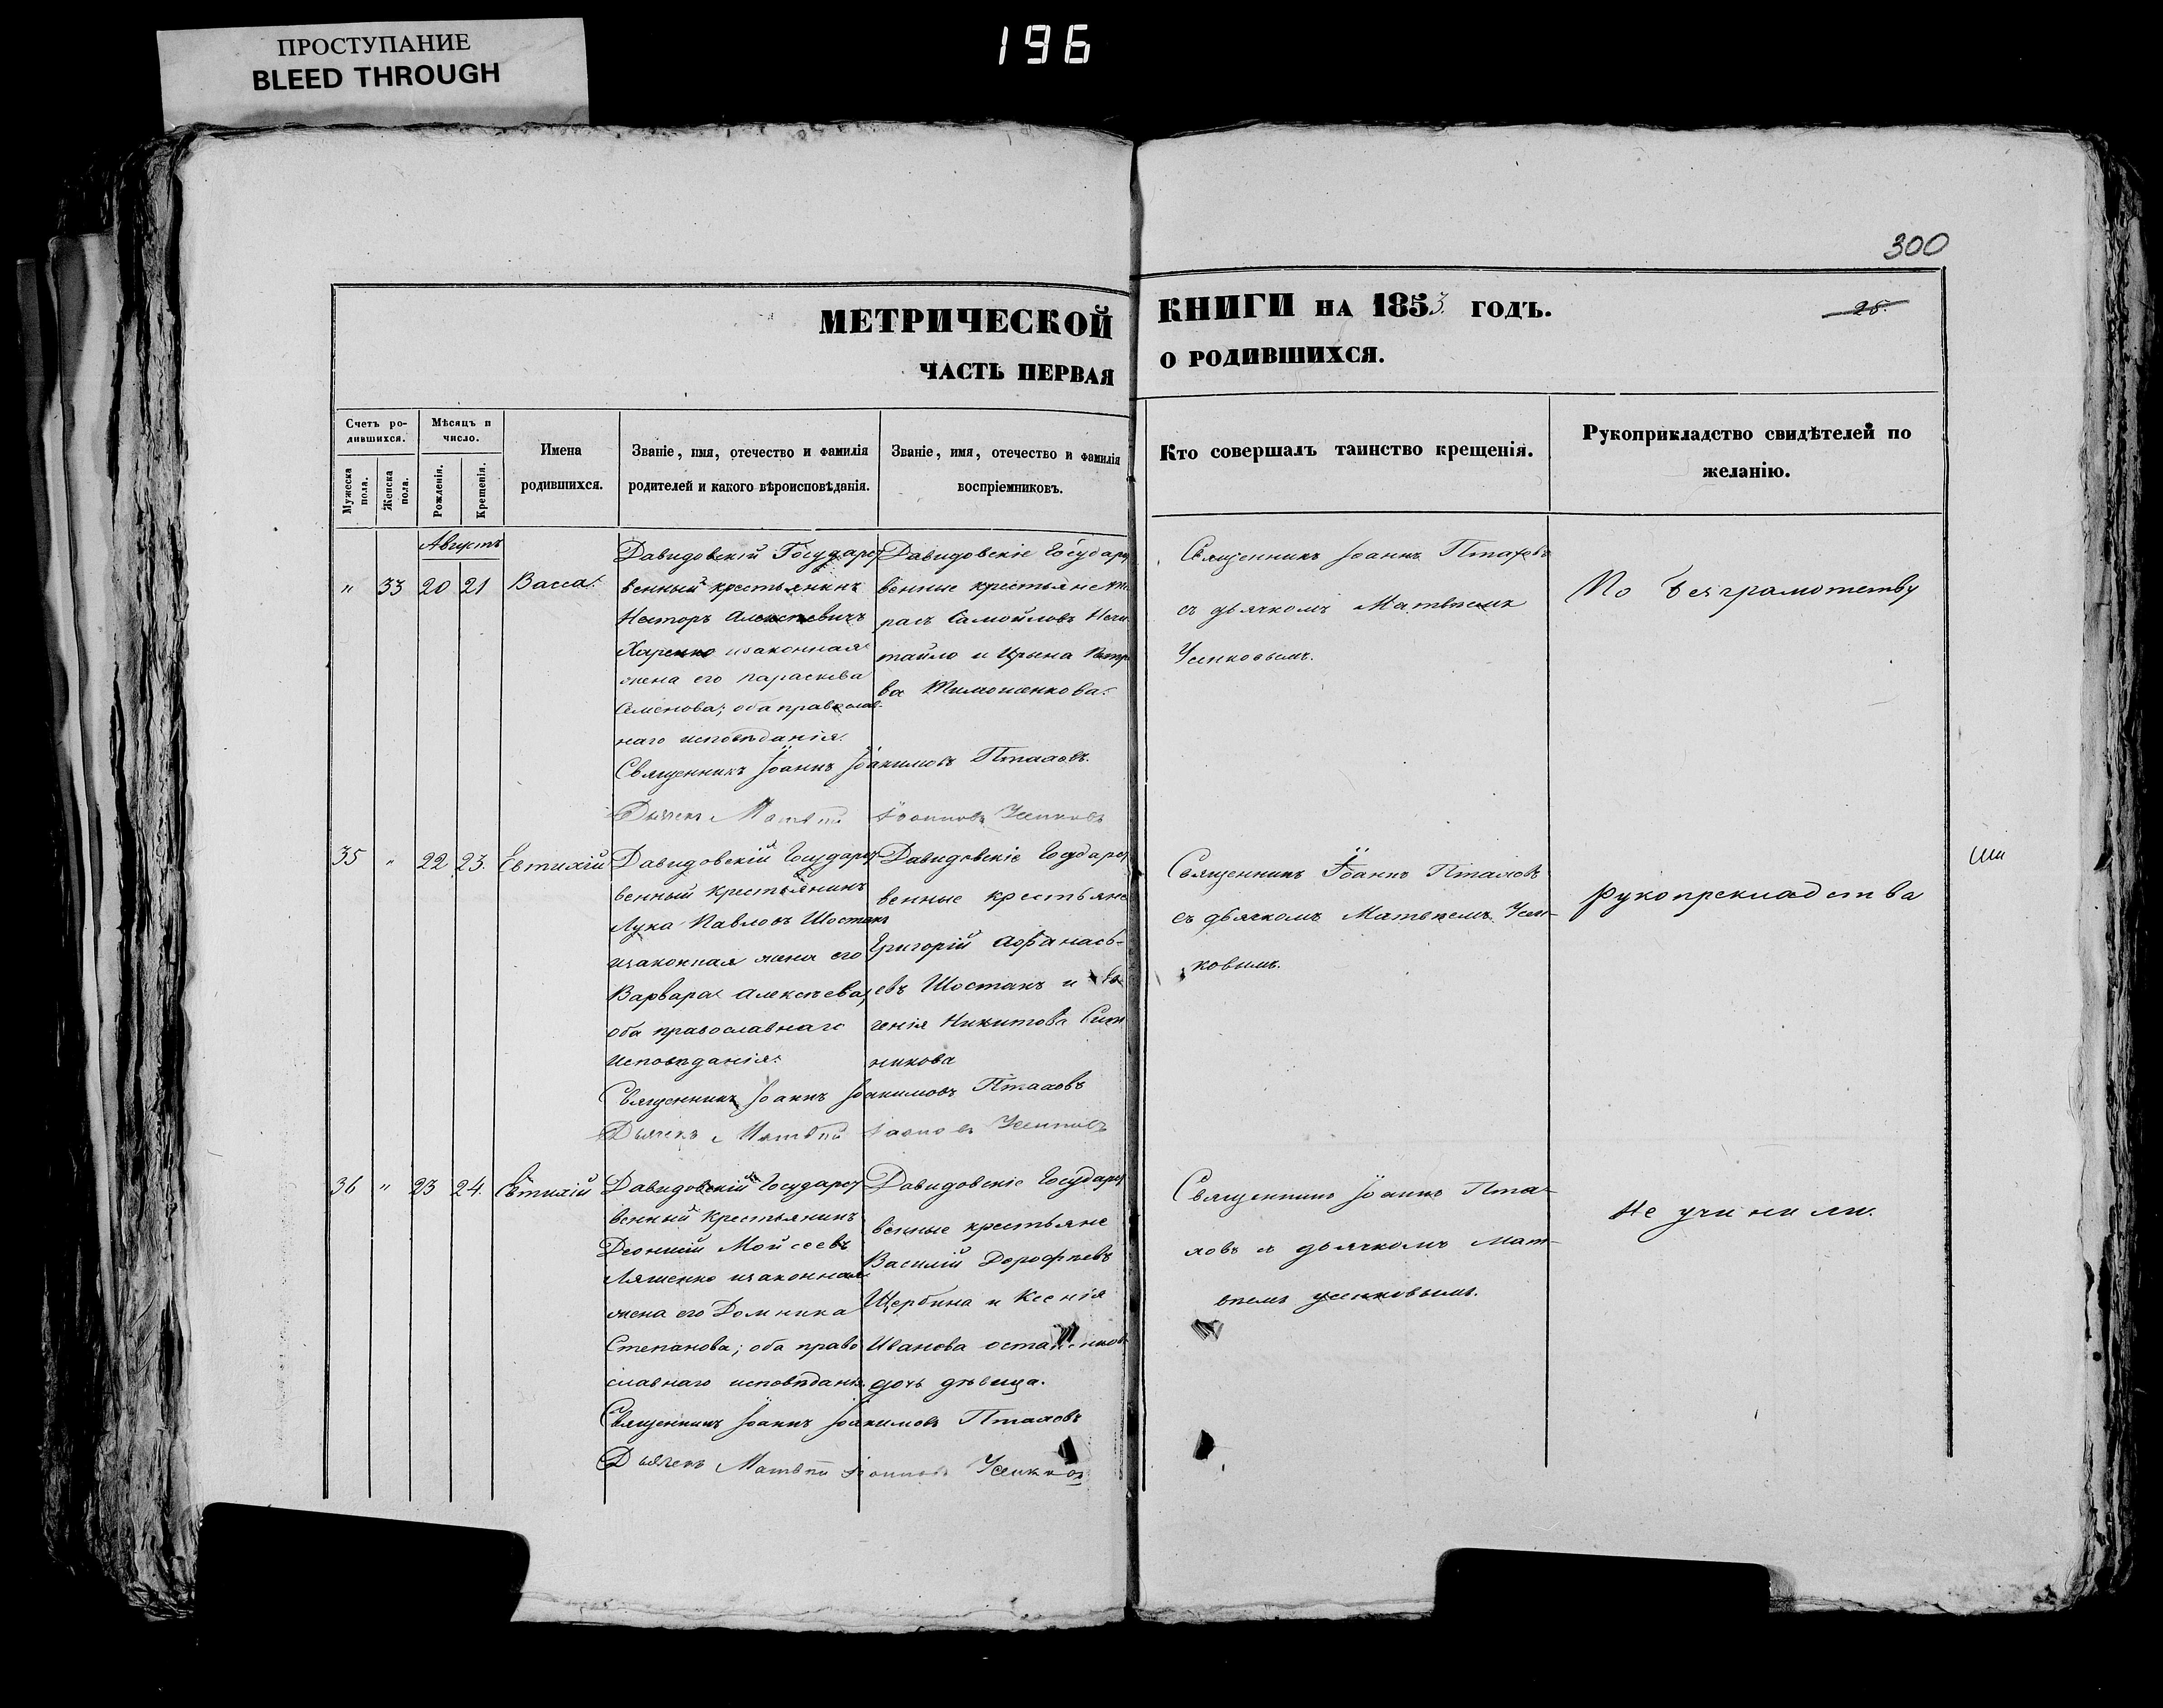 ПРОСТУПАНИЕ
BLEED THROUGH
196
300
МЕТРИЧЕСКОЙ КНИГИ НА 1853 ГОДЪ.
28.
ЧАСТЬ ПЕРВАЯ О РОДИВШИХСЯ.
Счетъ ро-
дившихся.
Мужеска
пола.
Женска
пола.
Мѣсяцъ и
число.
Рожденія.
Крещенія.
Имена
родившихся.
Званіе, имя, отечество и фамилія
родителей и какого вѣроисповѣданія.
Званіе, имя, отечество и фамилія
воспріемниковъ.
Кто совершалъ таинство крещенія.
Рукоприкладство свидѣтелей по
желанію.
Августъ
" 33 20 21 Васса
Давидовскій Государст
венный крестьянинъ
Несторъ Алексѣевичъ
Харенко изаконная
жена его Параскева
Семенова; оба православ
наго исповѣданія.
Давидовскіе Государст
венные крестьяне
расъ Самойловъ
тайло и Ирына
ва Тимошенкова
Священникъ Іоаннъ Птаховъ
съ дьячкомъ Матвѣемъ
Усенковымъ.
По безграмотству
Священникъ Іоаннъ Іоакимовъ Птаховъ.
Дьячекъ Матвѣй Іоанновъ Усенковъ
35 " 22 23. Евтихій
Давидовскій Государст
венный крестьянинъ
Лука Павловъ Шостакъ
изаконная жена его
Варвара Алексѣева,
оба православнаго
исповѣданія.
Давидовскіе Государст
венные крестьяне
Григорій Афанась-
евъ Шостакъ и Ев
генія Никитова
никова
Священникъ Іоаннъ Птаховъ
съ дьячкомъ Матвѣемъ Усен-
ковымъ.
рукоприкладства
Священникъ Іоаннъ Іоакимовъ Птаховъ
Дьячекъ Матвѣй Іоанновъ Усенковъ
36 " 23 24. Евтихій
Давидовскій Государст
венный крестьянинъ
Деонисій Мойсеевъ
Ляшенко изаконная
жена его Домника
Степанова; оба право
славнаго исповѣданія.
Давидовскіе Государст
венные крестьяне
Василій Дорофѣевъ
Щербина и Ксенія
Иванова
дочь дѣвица.
Священникъ Іоаннъ Пта-
ховъ съ дьячкомъ Мат-
вѣемъ Усенковымъ.
не учинили.
Священникъ Іоаннъ Іоакимовъ Птаховъ
Дьячекъ Матвѣй Іоанновъ Усенковъ